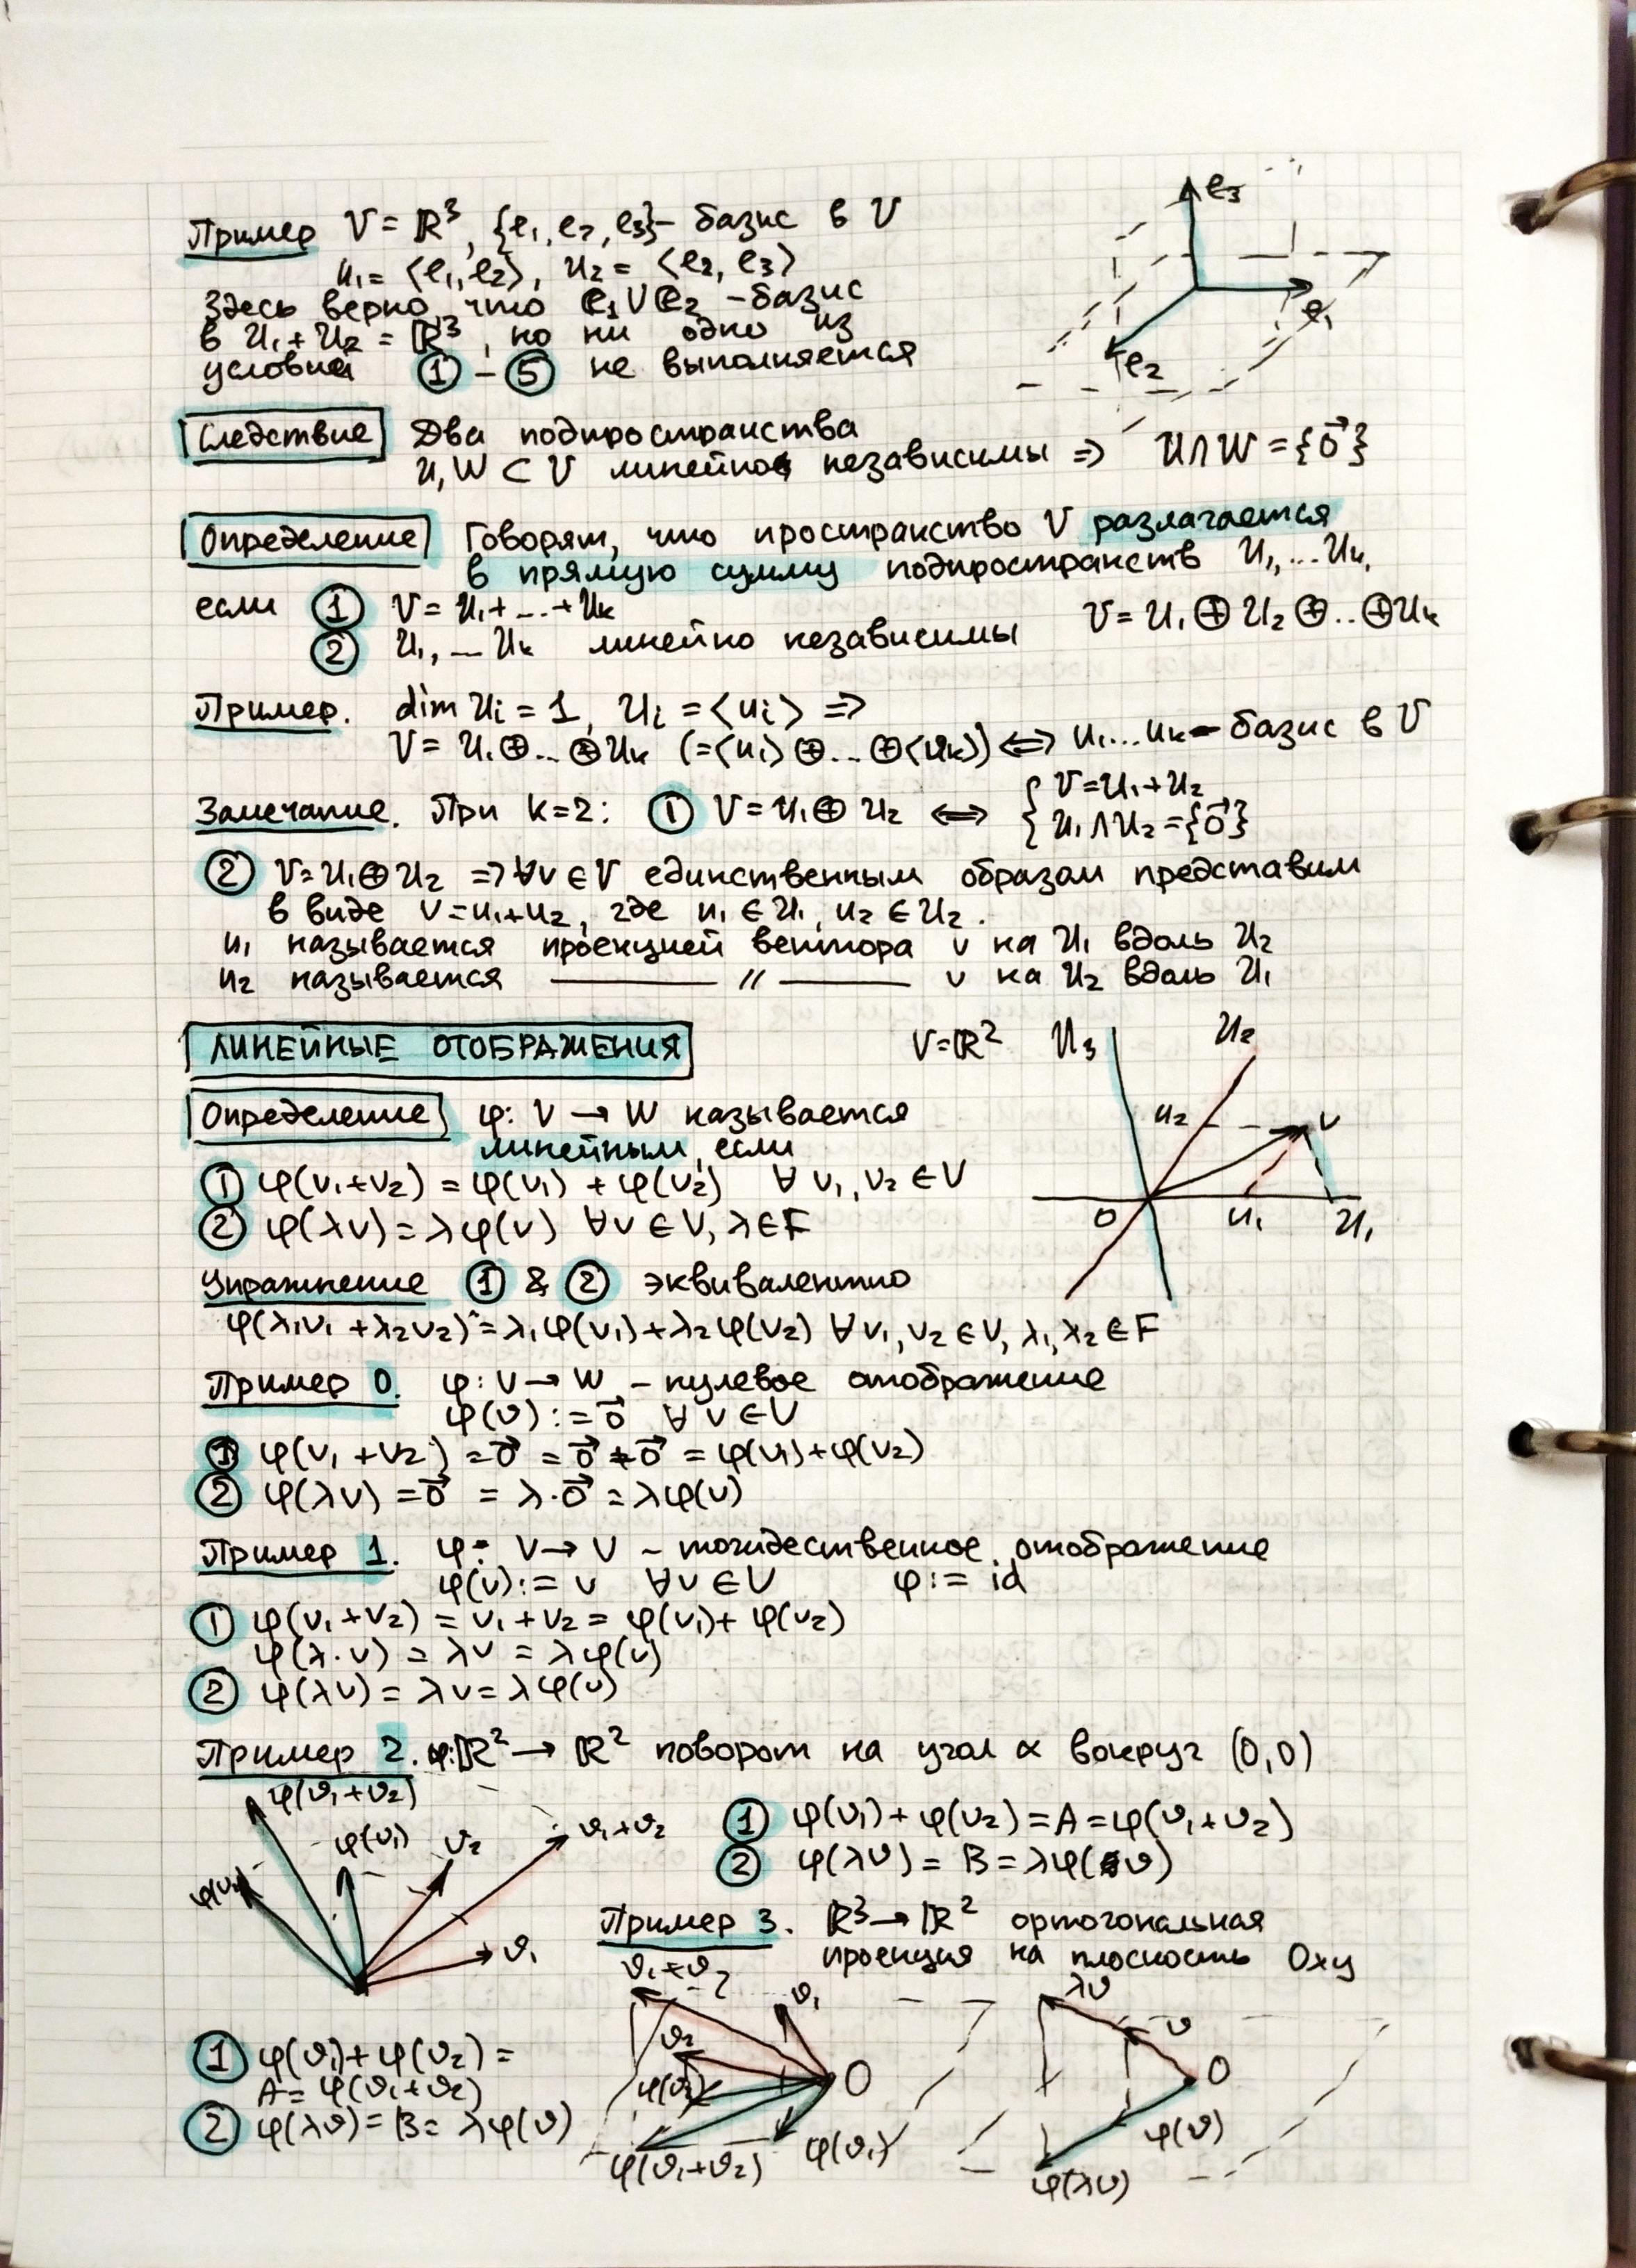 Пример V = ℝ³, {e₁, e₂, e₃} – базис в V
U₁ = ⟨e₁, e₂⟩, U₂ = ⟨e₂, e₃⟩
Здесь верно, что e₁ ∪ e₂ – базис
в U₁ + U₂ = ℝ³, но ни одно из
условий ① – ⑤ не выполняется
e₃
e₁
e₂
Следствие Два подпространства
U, W ⊂ V линейно независимы ⇒ U ∩ W = {0⃗}
Определение Говорят, что пространство V разлагается
в прямую сумму подпространств U₁, ... Uₖ,
если ① V = U₁ + ... + Uₖ V = U₁ ⊕ U₂ ⊕ .. ⊕ Uₖ
② U₁, ... Uₖ линейно независимы
Пример. dim Uᵢ = 1, Uᵢ = ⟨uᵢ⟩ ⇒
V = U₁ ⊕ ... ⊕ Uₖ (= ⟨u₁⟩ ⊕ ... ⊕ ⟨uₖ⟩) ⟺ u₁ ... uₖ – базис в V
Замечание. При k = 2: ① V = U₁ ⊕ U₂ ⟺ { V = U₁ + U₂
U₁ ∩ U₂ = {0⃗}
② V = U₁ ⊕ U₂ ⇒ ∀v ∈ V единственным образом представим
в виде v = u₁ + u₂, где u₁ ∈ U₁, u₂ ∈ U₂.
u₁ называется проекцией вектора v на U₁ вдоль U₂
u₂ называется —— // —— v на U₂ вдоль U₁
ЛИНЕЙНЫЕ ОТОБРАЖЕНИЯ
V = ℝ² U₃ U₂
u₂ v
0 u₁ U₁
Определение φ: V → W называется
линейным, если
① φ(v₁ + v₂) = φ(v₁) + φ(v₂) ∀ v₁, v₂ ∈ V
② φ(λv) = λφ(v) ∀v ∈ V, λ ∈ F
Упражнение ① & ② эквивалентно
φ(λ₁v₁ + λ₂v₂) = λ₁φ(v₁) + λ₂φ(v₂) ∀v₁, v₂ ∈ V, λ₁, λ₂ ∈ F
Пример 0. φ: V → W – нулевое отображение
φ(v) := 0⃗ ∀ v ∈ V
① φ(v₁ + v₂) = 0⃗ = 0⃗ + 0⃗ = φ(v₁) + φ(v₂)
② φ(λv) = 0⃗ = λ·0⃗ = λφ(v)
Пример 1. φ: V → V – тождественное отображение
φ(v) := v ∀v ∈ V φ := id
① φ(v₁ + v₂) = v₁ + v₂ = φ(v₁) + φ(v₂)
φ(λ·v) = λv = λφ(v)
② φ(λv) = λv = λφ(v)
Пример 2. φ: ℝ² → ℝ² поворот на угол α вокруг (0,0)
φ(v₁ + v₂)
φ(v₁) v₂ v₁ + v₂
φ(v₂)
v₁
① φ(v₁) + φ(v₂) = A = φ(v₁ + v₂)
② φ(λv) = B = λφ(v)
Пример 3. ℝ³ → ℝ² ортогональная
проекция на плоскость Oxy
v₁ + v₂ v₁
v₂
φ(v₂) O
φ(v₁ + v₂) φ(v₁)
λv
v
O
φ(v)
φ(λv)
① φ(v₁) + φ(v₂) =
A = φ(v₁ + v₂)
② φ(λv) = B = λφ(v)